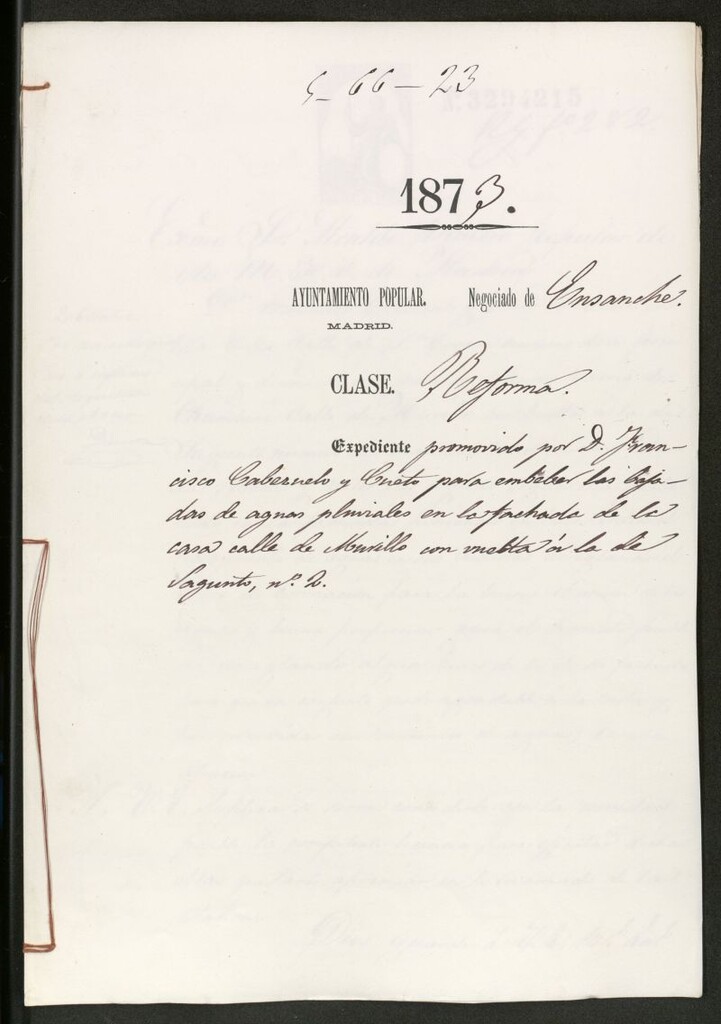 5-66-23
1873.
AYUNTAMIENTO POPULAR. Negociado de Ensanche.
MADRID.
CLASE. Reforma.
Expediente promovido por D. Fran-
cisco Cabezuelo y Cueto para embeber las baja-
das de aguas pluviales en la fachada de la
casa calle de Murillo con vuelta á la de
Sagunto, nº 2.